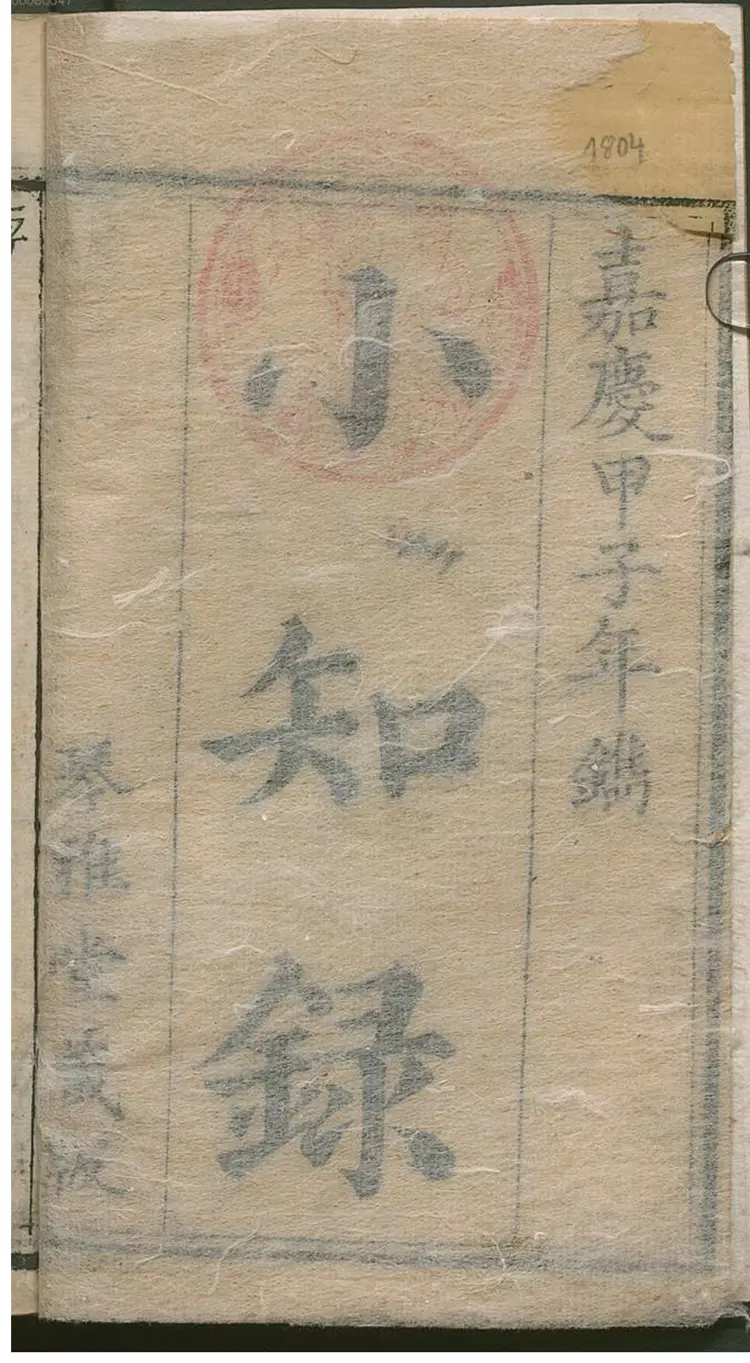 1804
嘉慶甲子年鐫
小知録
琴雅堂藏板